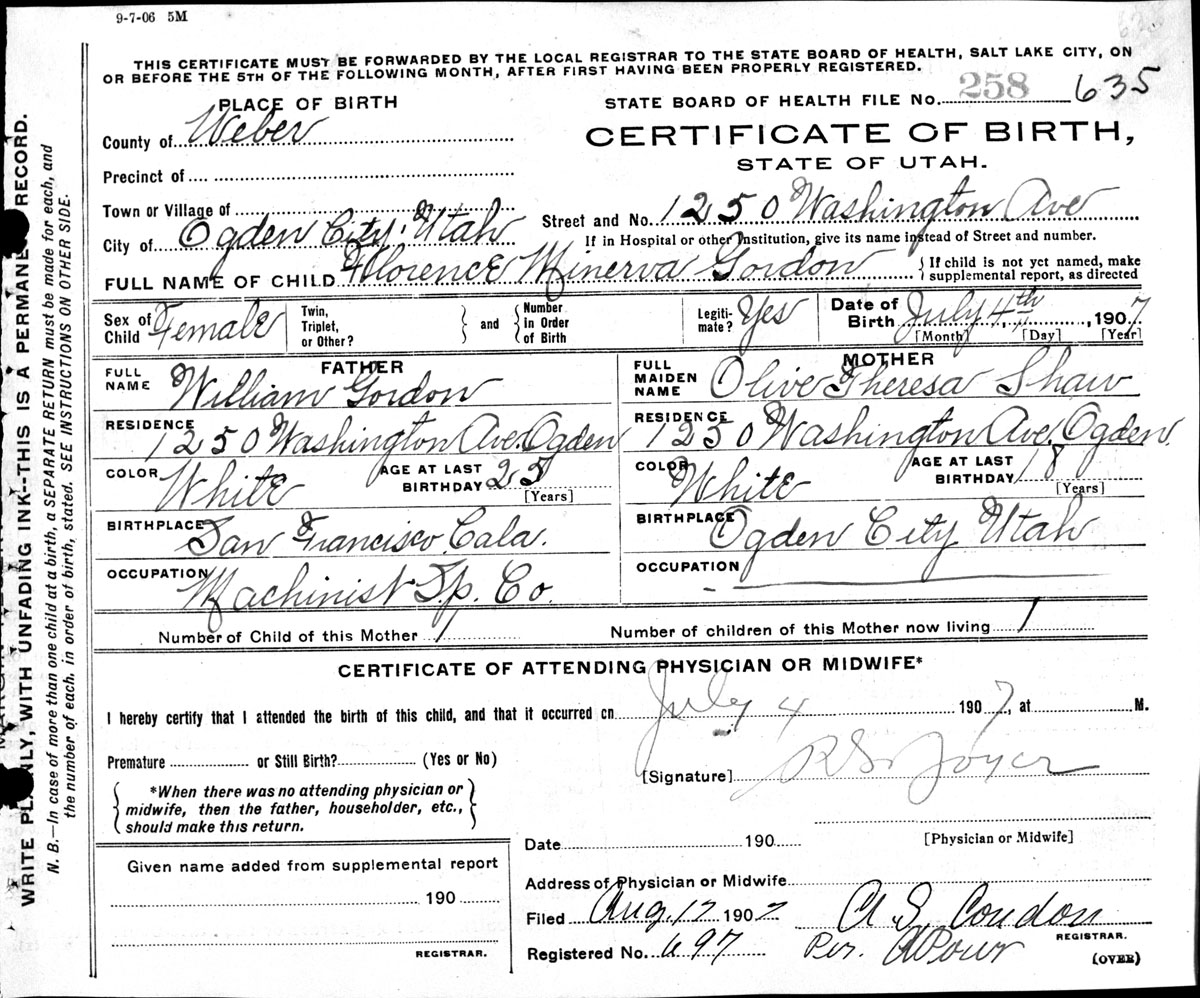 9-7-06 5M
THIS CERTIFICATE MUST BE FORWARDED BY THE LOCAL REGISTRAR TO THE STATE BOARD OF HEALTH, SALT LAKE CITY, ON
OR BEFORE THE 5TH OF THE FOLLOWING MONTH, AFTER FIRST HAVING BEEN PROPERLY REGISTERED.
PLACE OF BIRTH
STATE BOARD OF HEALTH FILE No. 258 635
County of Weber
CERTIFICATE OF BIRTH,
STATE OF UTAH.
Precinct of
Town or Village of
Street and No. 1250 Washington Ave
City of Ogden City, Utah
If in Hospital or other Institution, give its name instead of Street and number.
FULL NAME OF CHILD Florence Minerva Gordon
{ If child is not yet named, make
supplemental report, as directed
Sex of Child Female
Twin, Triplet, or Other?
} and { Number in Order of Birth
Legiti-mate? Yes
Date of Birth July 4th, 1907
[Month] [Day] [Year]
FATHER
MOTHER
FULL NAME William Gordon
FULL MAIDEN NAME Olive Theresa Shaw
RESIDENCE 1250 Washington Ave. Ogden
RESIDENCE 1250 Washington Ave. Ogden.
COLOR White
AGE AT LAST BIRTHDAY 25 [Years]
COLOR White
AGE AT LAST BIRTHDAY 18 [Years]
BIRTHPLACE San Francisco, Cala.
BIRTHPLACE Ogden City Utah
OCCUPATION Machinist S.p. Co.
OCCUPATION
Number of Child of this Mother 1
Number of children of this Mother now living 1
CERTIFICATE OF ATTENDING PHYSICIAN OR MIDWIFE*
I hereby certify that I attended the birth of this child, and that it occurred on July 4 1907, at M.
Premature or Still Birth? (Yes or No)
[Signature] R S. Joyce
*When there was no attending physician or
midwife, then the father, householder, etc.,
should make this return.
[Physician or Midwife]
Date 190
Given name added from supplemental report
190
REGISTRAR.
Address of Physician or Midwife
Filed Aug. 17 1907 A S. Condon
REGISTRAR.
Registered No. 697 Per.
(OVER)
WRITE PLAINLY, WITH UNFADING INK--THIS IS A PERMANENT RECORD.
N. B.—In case of more than one child at a birth, a SEPARATE RETURN must be made for each, and
the number of each. in order of birth, stated. SEE INSTRUCTIONS ON OTHER SIDE.